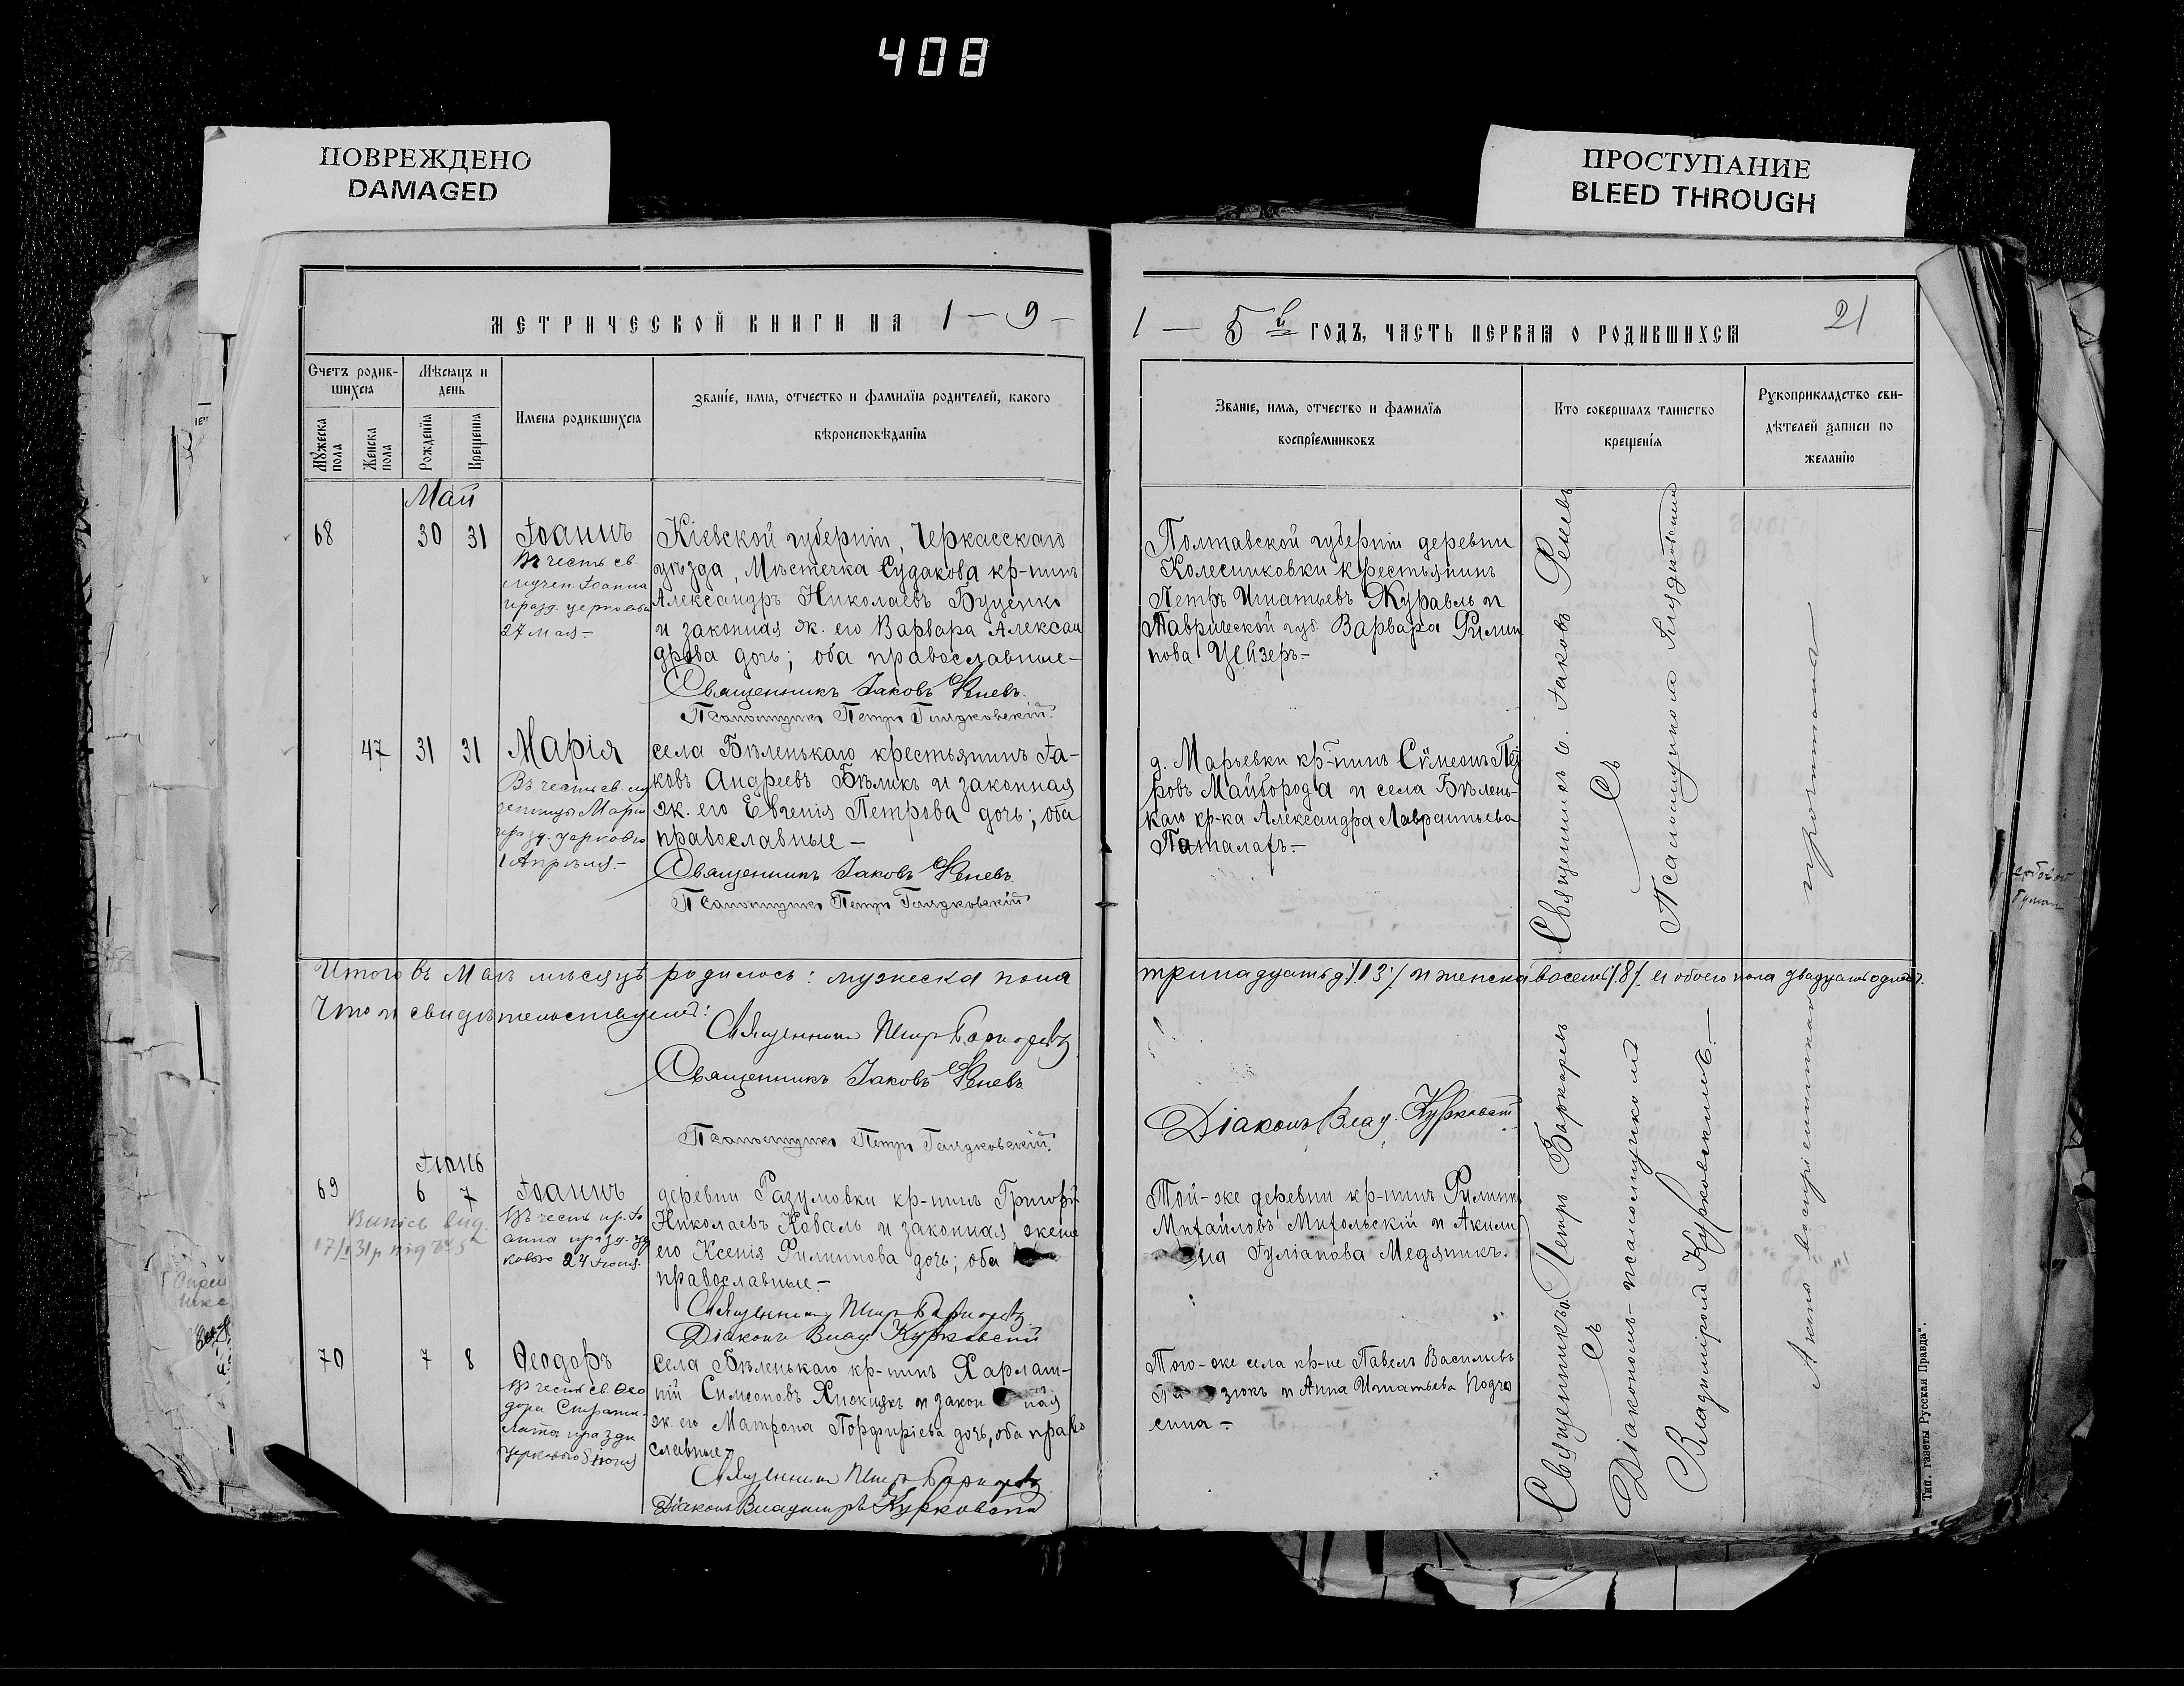 408
ПОВРЕЖДЕНО
DAMAGED
ПРОСТУПАНИЕ
BLEED THROUGH
МЕТРИЧЕСКОЙ КНИГИ НА 1 — 9 —
1 — 5й ГОДЪ, ЧАСТЬ ПЕРВАЯ О РОДИВШИХСЯ
21
Счетъ родив-
шихся
Мѣсяцъ и
день
Мужеска
пола
Женска
пола
Рожденія
Крещенія
Имена родившихся
Званіе, имя, отчество и фамилія родителей, какого
вѣроисповѣданія
Званіе, имя, отчество и фамилія
воспріемниковъ
Кто совершалъ таинство
крещенія
Рукоприкладство сви-
дѣтелей записи по
желанію
Май
68 30 31
Іоаннъ
Въ честь св.
мучен. Іоанна
празд. церковью
27 мая —
Кіевской губерніи, Черкасскаго
уѣзда, Мѣстечка Судакова кр-нинъ
Александръ Николаевъ Буценко
и законная ж. его Варвара Алексан
дрова дочь; оба православные —
Священникъ Іаковъ Фелевъ.
Псаломщикъ Петръ Гляздковскій.
Полтавской губерніи деревни
Колесниковки крестьянинъ
Петръ Игнатьевъ Журавль и
Таврической губ. Варвара Филип
пова Цейзеръ —
47 31 31
Марія
Въ честь св. му
ченицы Маріи
празд. церковью
1 Апрѣля. —
села Бѣленькаго крестьянинъ Іа-
ковъ Андреевъ Бѣликъ и законная
ж. его Евгенія Петрова дочь; оба
православные —
Священникъ Іаковъ
Псаломщикъ Петръ
д. Марьевки кр-нинъ Сѵмеонъ Пет
ровъ Майборода и села Бѣлень-
каго кр-ка Александра Лаврентьева
Паталахъ. —
Священникъ о. Іаковъ
Съ
Псаломщикомъ
неграмотна
Итого въ Маѣ мѣсяцѣ родилось: мужеска пола
тринадцать /13/ и женска восемь /8/ и обоего пола двадцать одинъ.
Что и свидѣтельствуемъ:
Священникъ Петръ
Священникъ Іаковъ
Псаломщикъ Петръ
Діаконъ Влад. Курковскій
Іюнь
69 6 7
Іоаннъ
Въ честь пр. Іо
анна празд. цер
ковью 24 Іюня.
деревни Разумовки кр-нинъ Григорій
Николаевъ Коваль и законная жена
его Ксенія Филиппова дочь; оба
православные —
Священникъ Петръ
Діаконъ Влад. Курковскій
Той-же деревни кр-нинъ Филиппъ
Михайловъ Михольскій и Акили
на Іуліанова Медяникъ.
70 7 8
Ѳеодоръ
Въ честь св. Ѳео
дора Страти-
лата празд.
церковью 8 Іюня
села Бѣленькаго кр-нинъ Харлам-
пій Симеоновъ и закон ная
ж. его Матрона Порфиріева дочь, оба право
славные.
Священникъ Петръ
Діаконъ Владиміръ Курковскій
Того-же села кр-не Павелъ Васильевъ
и Анна Игнатьева
Священникъ Петръ
Съ
Діакономъ-псаломщикомъ
Владиміромъ Курковскимъ. —
воспріемники
Тип. газеты „Русская Правда“.